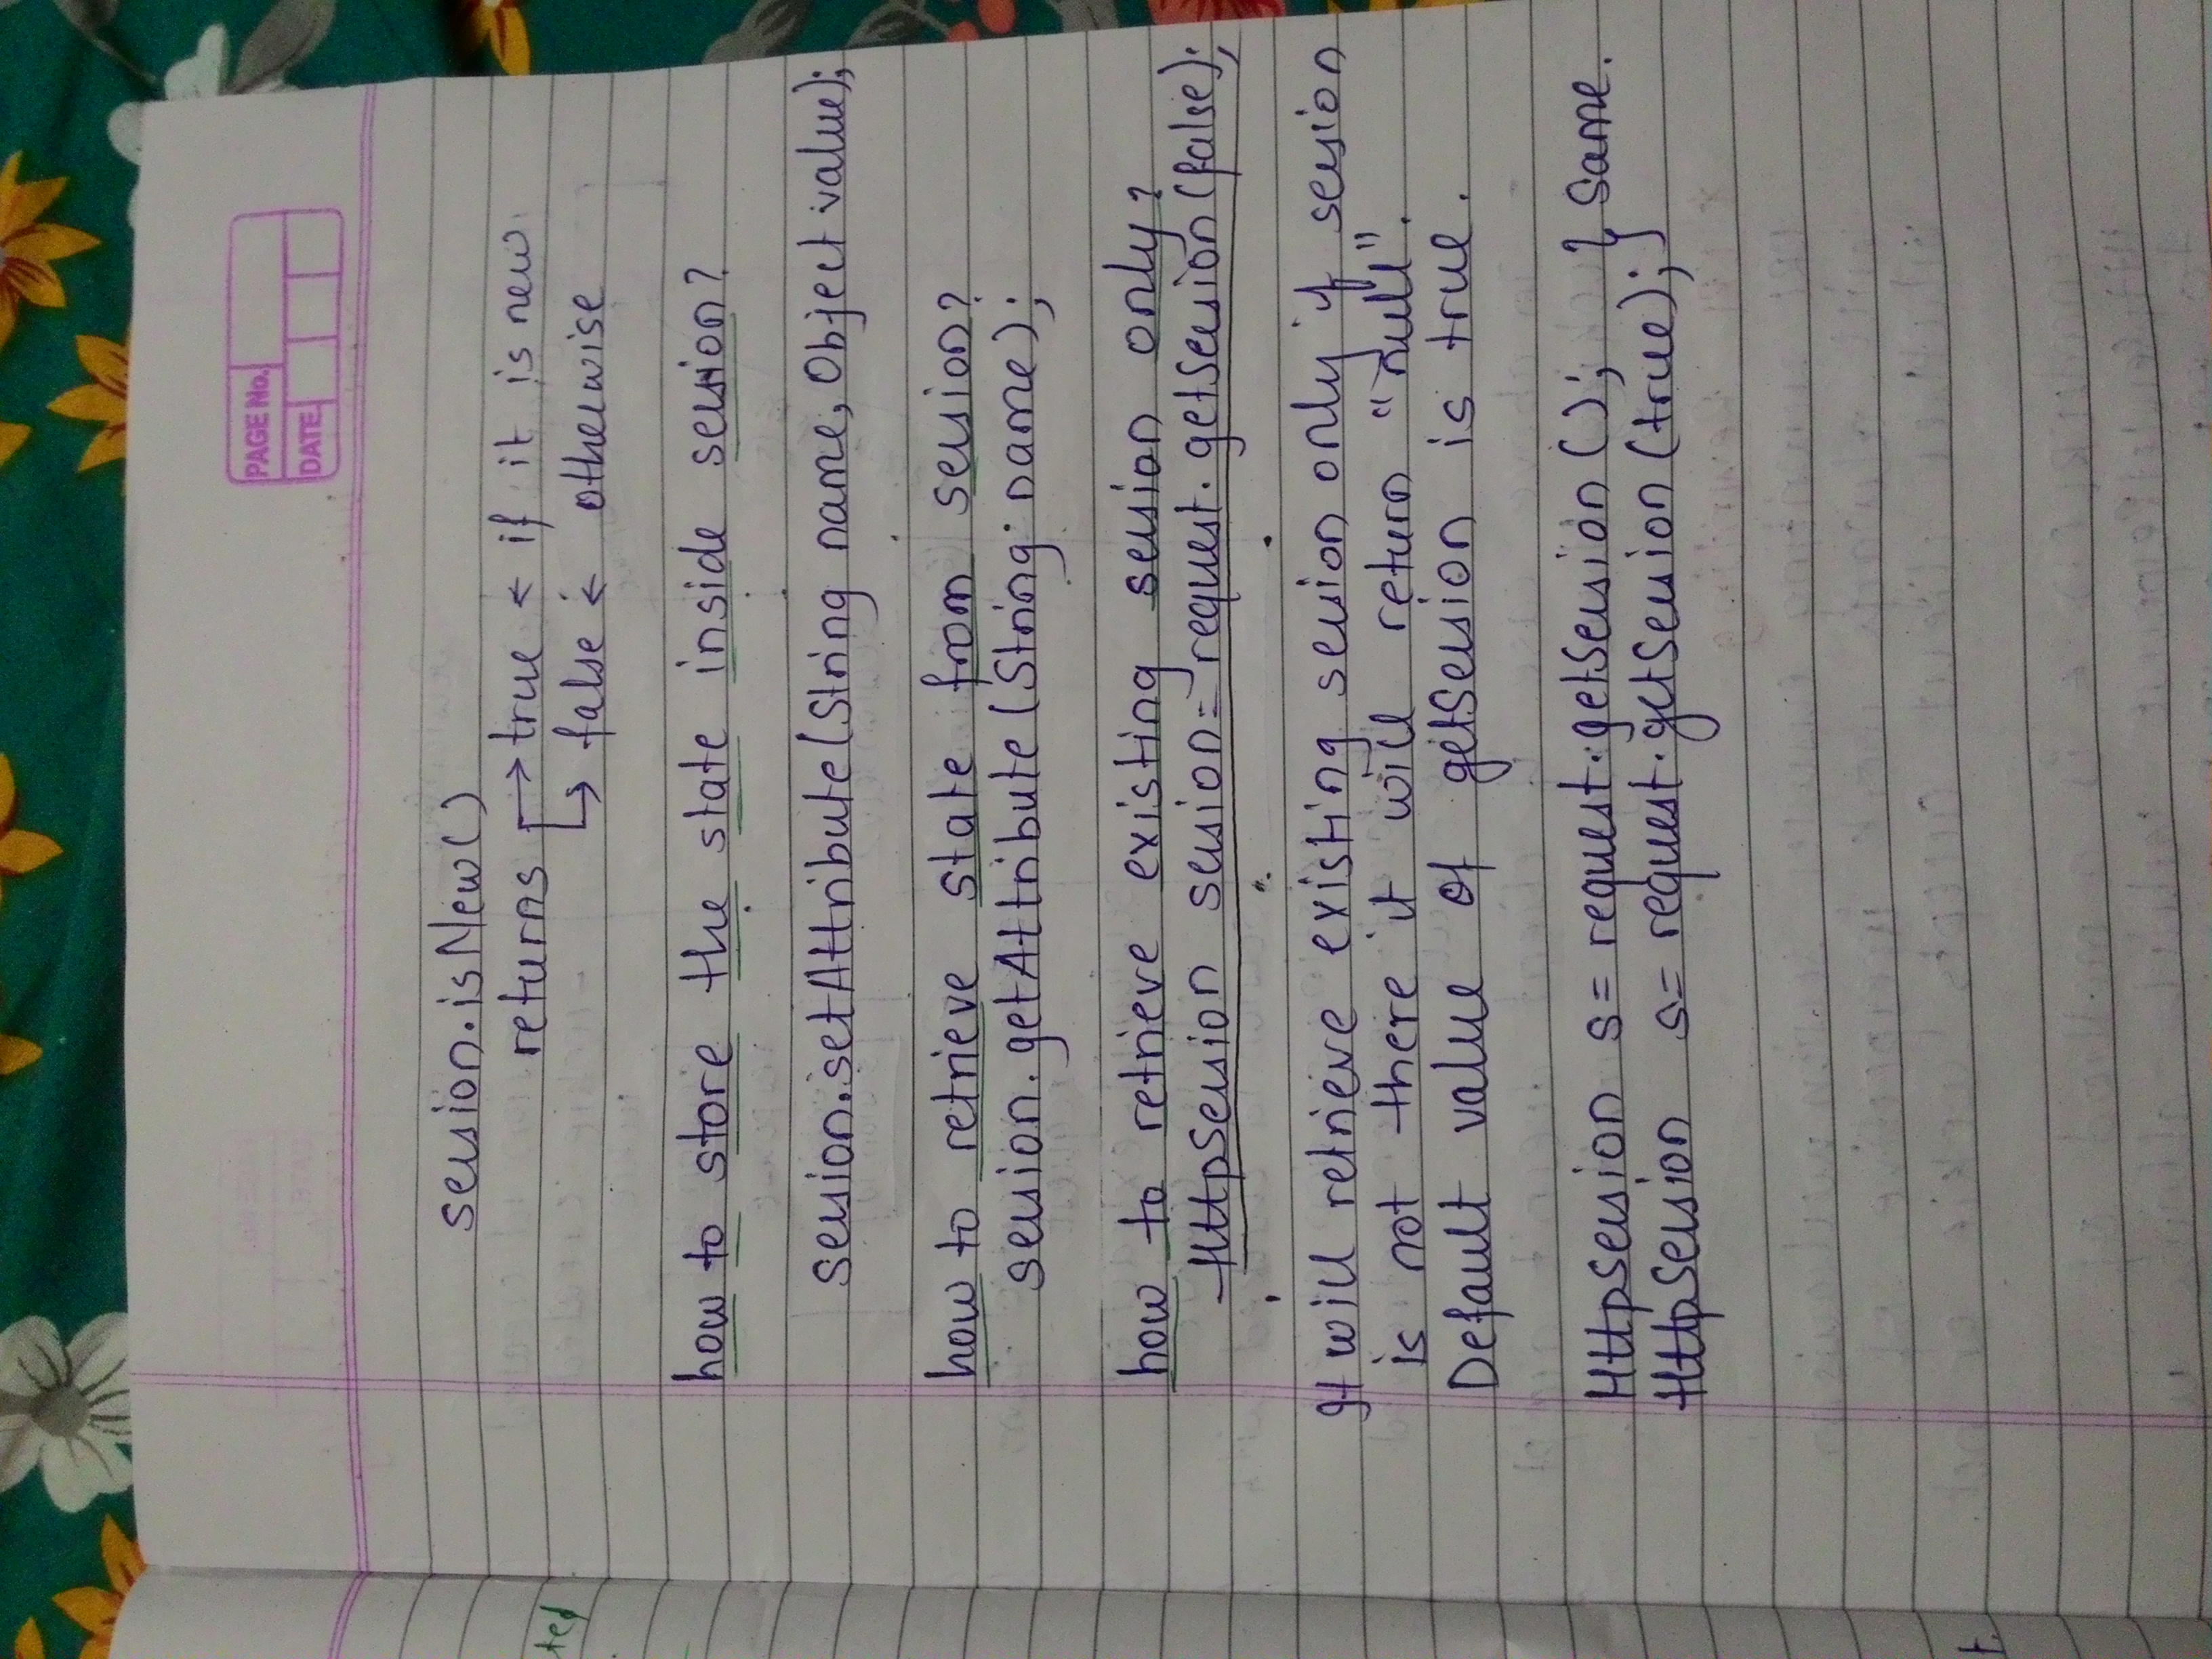 PAGE No.
DATE
session.isNew()
returns → true ← if it is new
↳ false ← otherwise
how to store the state inside session?
session.setAttribute(String name, Object value);
how to retrieve state from session?
session.getAttribute(String name);
how to retrieve existing session only?
HttpSession session = request.getSession(false);
It will retrieve existing session only if session
is not there it will return "null".
Default value of getSession is true.
HttpSession s = request.getSession(); } same.
HttpSession s = request.getSession(true); }
ted
t.